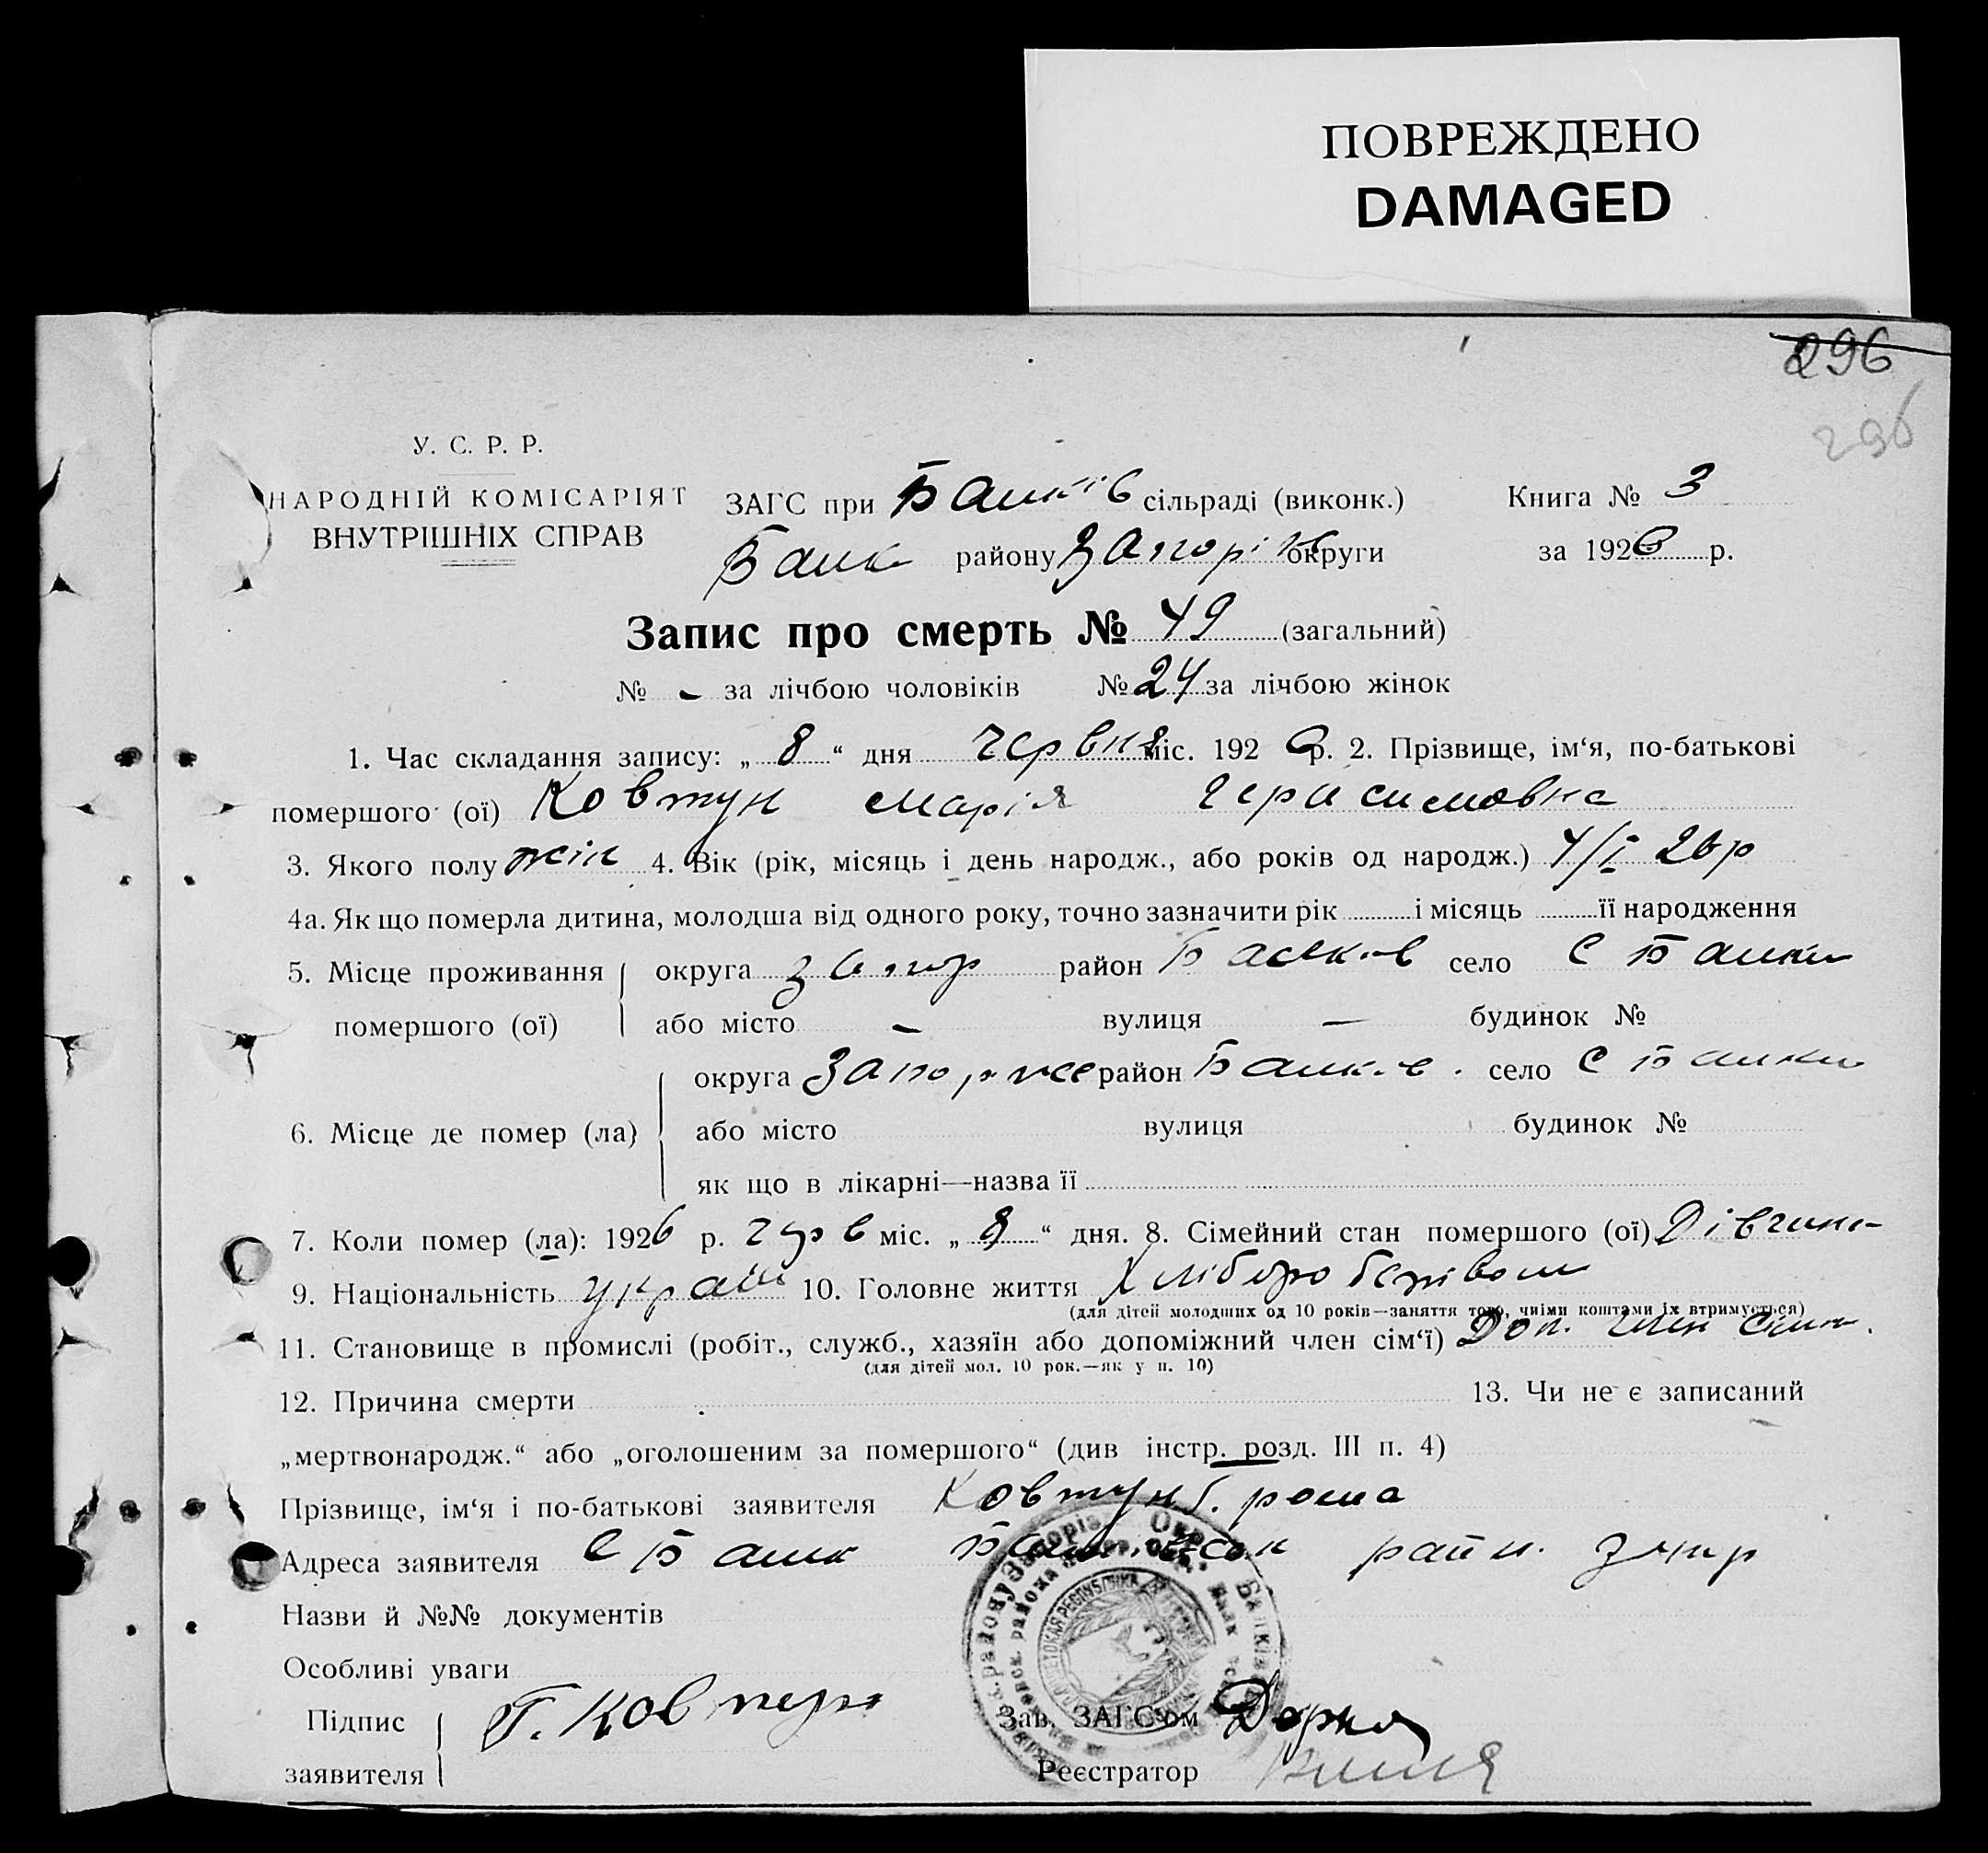 ПОВРЕЖДЕНО
DAMAGED
296
296
У. С. Р. Р.
НАРОДНІЙ КОМІСАРІЯТ
ВНУТРІШНІХ СПРАВ
ЗАГС при Балків сільраді (виконк.) Книга № 3
Балк району Запоріж округи за 1926 р.
Запис про смерть № 49 (загальний)
№ - за лічбою чоловіків № 24 за лічбою жінок
1. Час складання запису: „ 8 “ дня червня міс. 192 6 р. 2. Прізвище, ім‘я, по-батькові
помершого (ої) Ковтун Марія Герасимовна
3. Якого полу жін 4. Вік (рік, місяць і день народж., або років од народж.) 4/I 26 р
4а. Як що померла дитина, молодша від одного року, точно зазначити рік і місяць її народження
5. Місце проживання округа Запор район Балків село С Балки
помершого (ої) або місто - вулиця — будинок №
округа Запоріже район Балків. село С Балки
6. Місце де помер (ла) або місто вулиця будинок №
як що в лікарні—назва її
7. Коли помер (ла): 1926 р. черв міс. „ 8 “ дня. 8. Сімейний стан помершого (ої) Дівчина
9. Національність україн 10. Головне життя
(для дітей молодших од 10 років—заняття того, чиїми коштами їх втримується)
11. Становище в промислі (робіт., служб., хазяїн або допоміжний член сім‘ї) Доп. член сім.
(для дітей мол. 10 рок.—як у п. 10)
12. Причина смерти 13. Чи не є записаний
„мертвонародж.“ або „оголошеним за помершого“ (див інстр. розд. III п. 4)
Прізвище, ім‘я і по-батькові заявителя Ковтун
Адреса заявителя С Балк райн. Запор
Назви й №№ документів
Особливі уваги
Підпис Г. Ковтун Зав. ЗАГС‘ом
заявителя Реєстратор